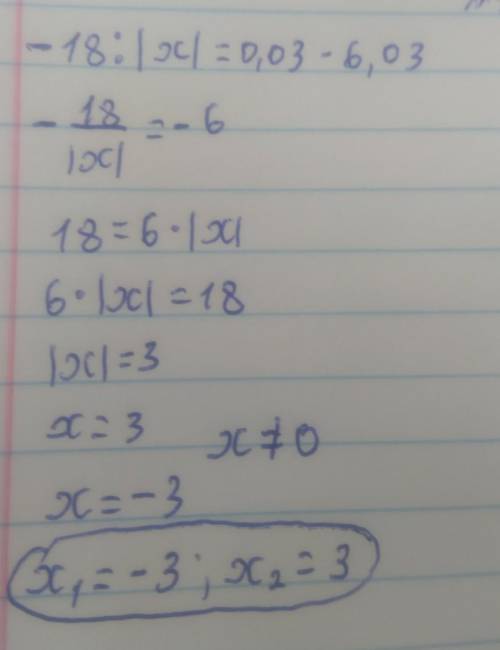 -18:|x|=0,03-6,03
-18/|x|=-6
18=6·|x|
6·|x|=18
|x|=3
x=3 x≠0
x=-3
x₁=-3; x₂=3